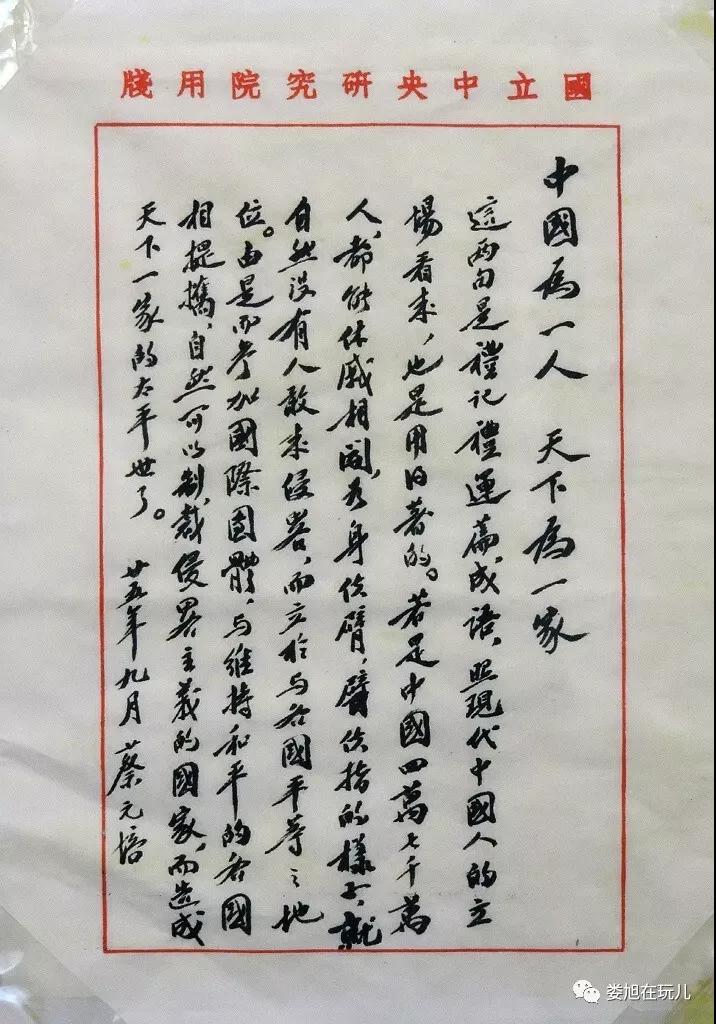 國立中央研究院用牋
中國為一人　天下為一家
這两句是禮記禮運篇成語，照現代中國人的立
場看来，也是用得著的。若是中國四萬七千萬
人，都能休戚相關，为身使臂，臂使指的樣子，就
自然没有人敢来侵畧，而立於与各國平等之地
位。由是而参加國際團體，与維持和平的各國
相提攜，自然可以制裁侵畧主義的國家，而造成
天下一家的太平世了。
廿五年九月　蔡元培
娄旭在玩儿